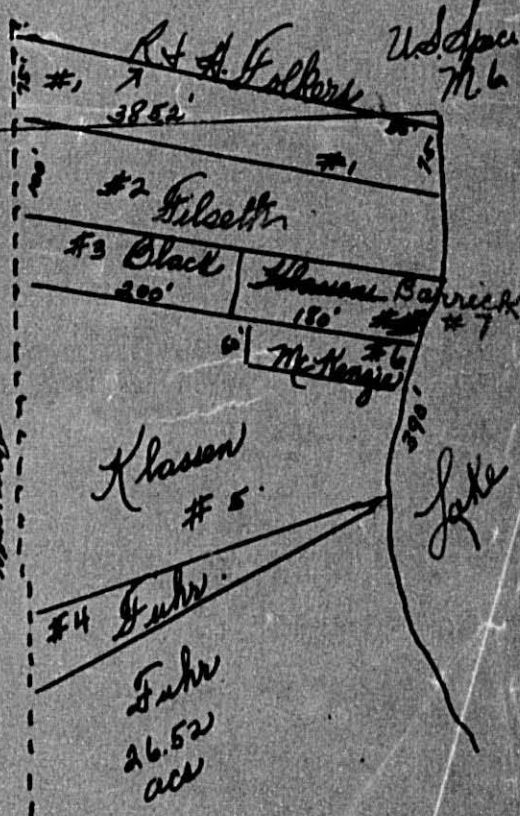 R & H. Folkers
U.S. Spec
M. 6
75'
#1
385.2'
#1
75'
#2 Filseth
#3 Black
200'
Klassen
180'
Barrick
#7
60'
McKenzie
#6
390'
Klassen
#5
Lake
#4 Fuhr
Fuhr
26.52
acs